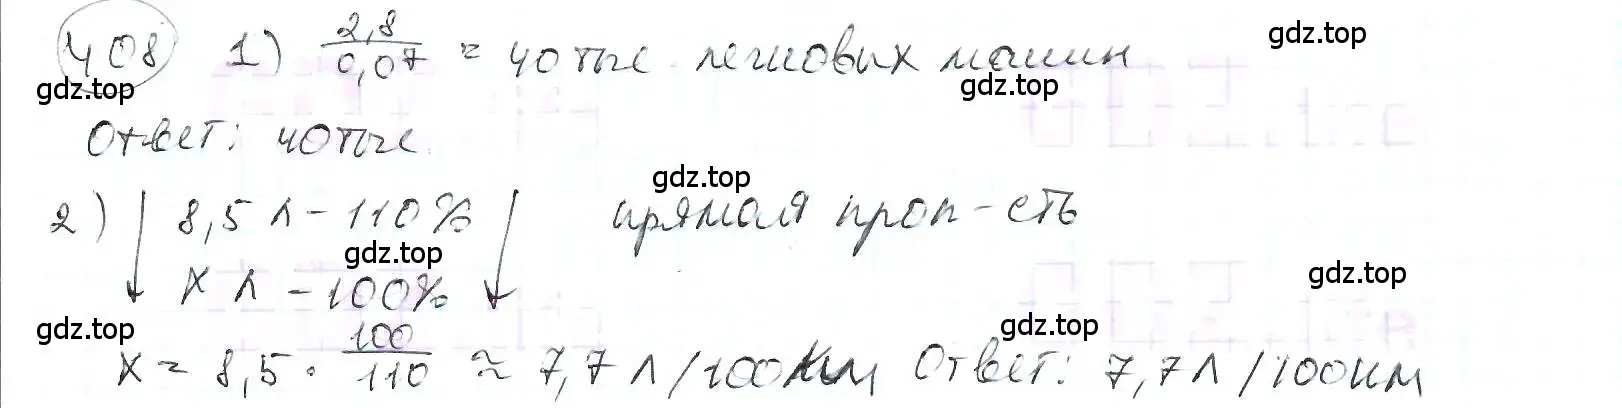 408 1) 2,8/0,07 = 40 тыс. легковых машин
gdz.top gdz.top gdz.top
Ответ: 40 тыс.
gdz.top
2) ↓ 8,5 л - 110% ↓ прямая проп-сть
gdz.top gdz.top
x л - 100%
gdz.top gdz.top
x = 8,5 · 100/110 ≈ 7,7 л/100км Ответ: 7,7 л/100км